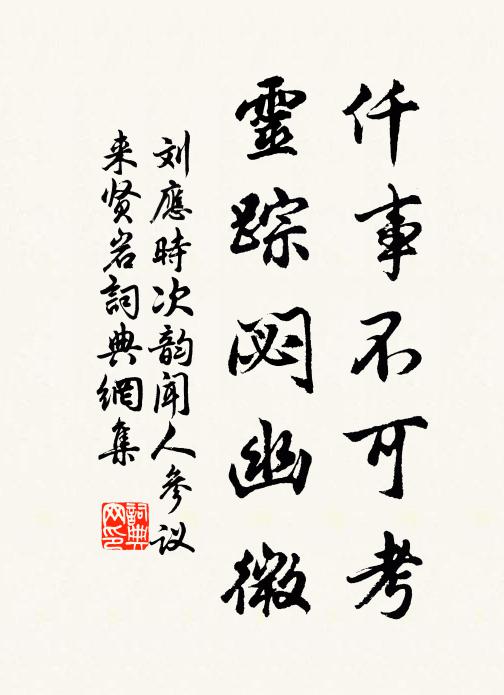 仟事不可考
靈踪閟幽微
刘應時次韵闻人參议
来贤岩詞典網集
詞典网印